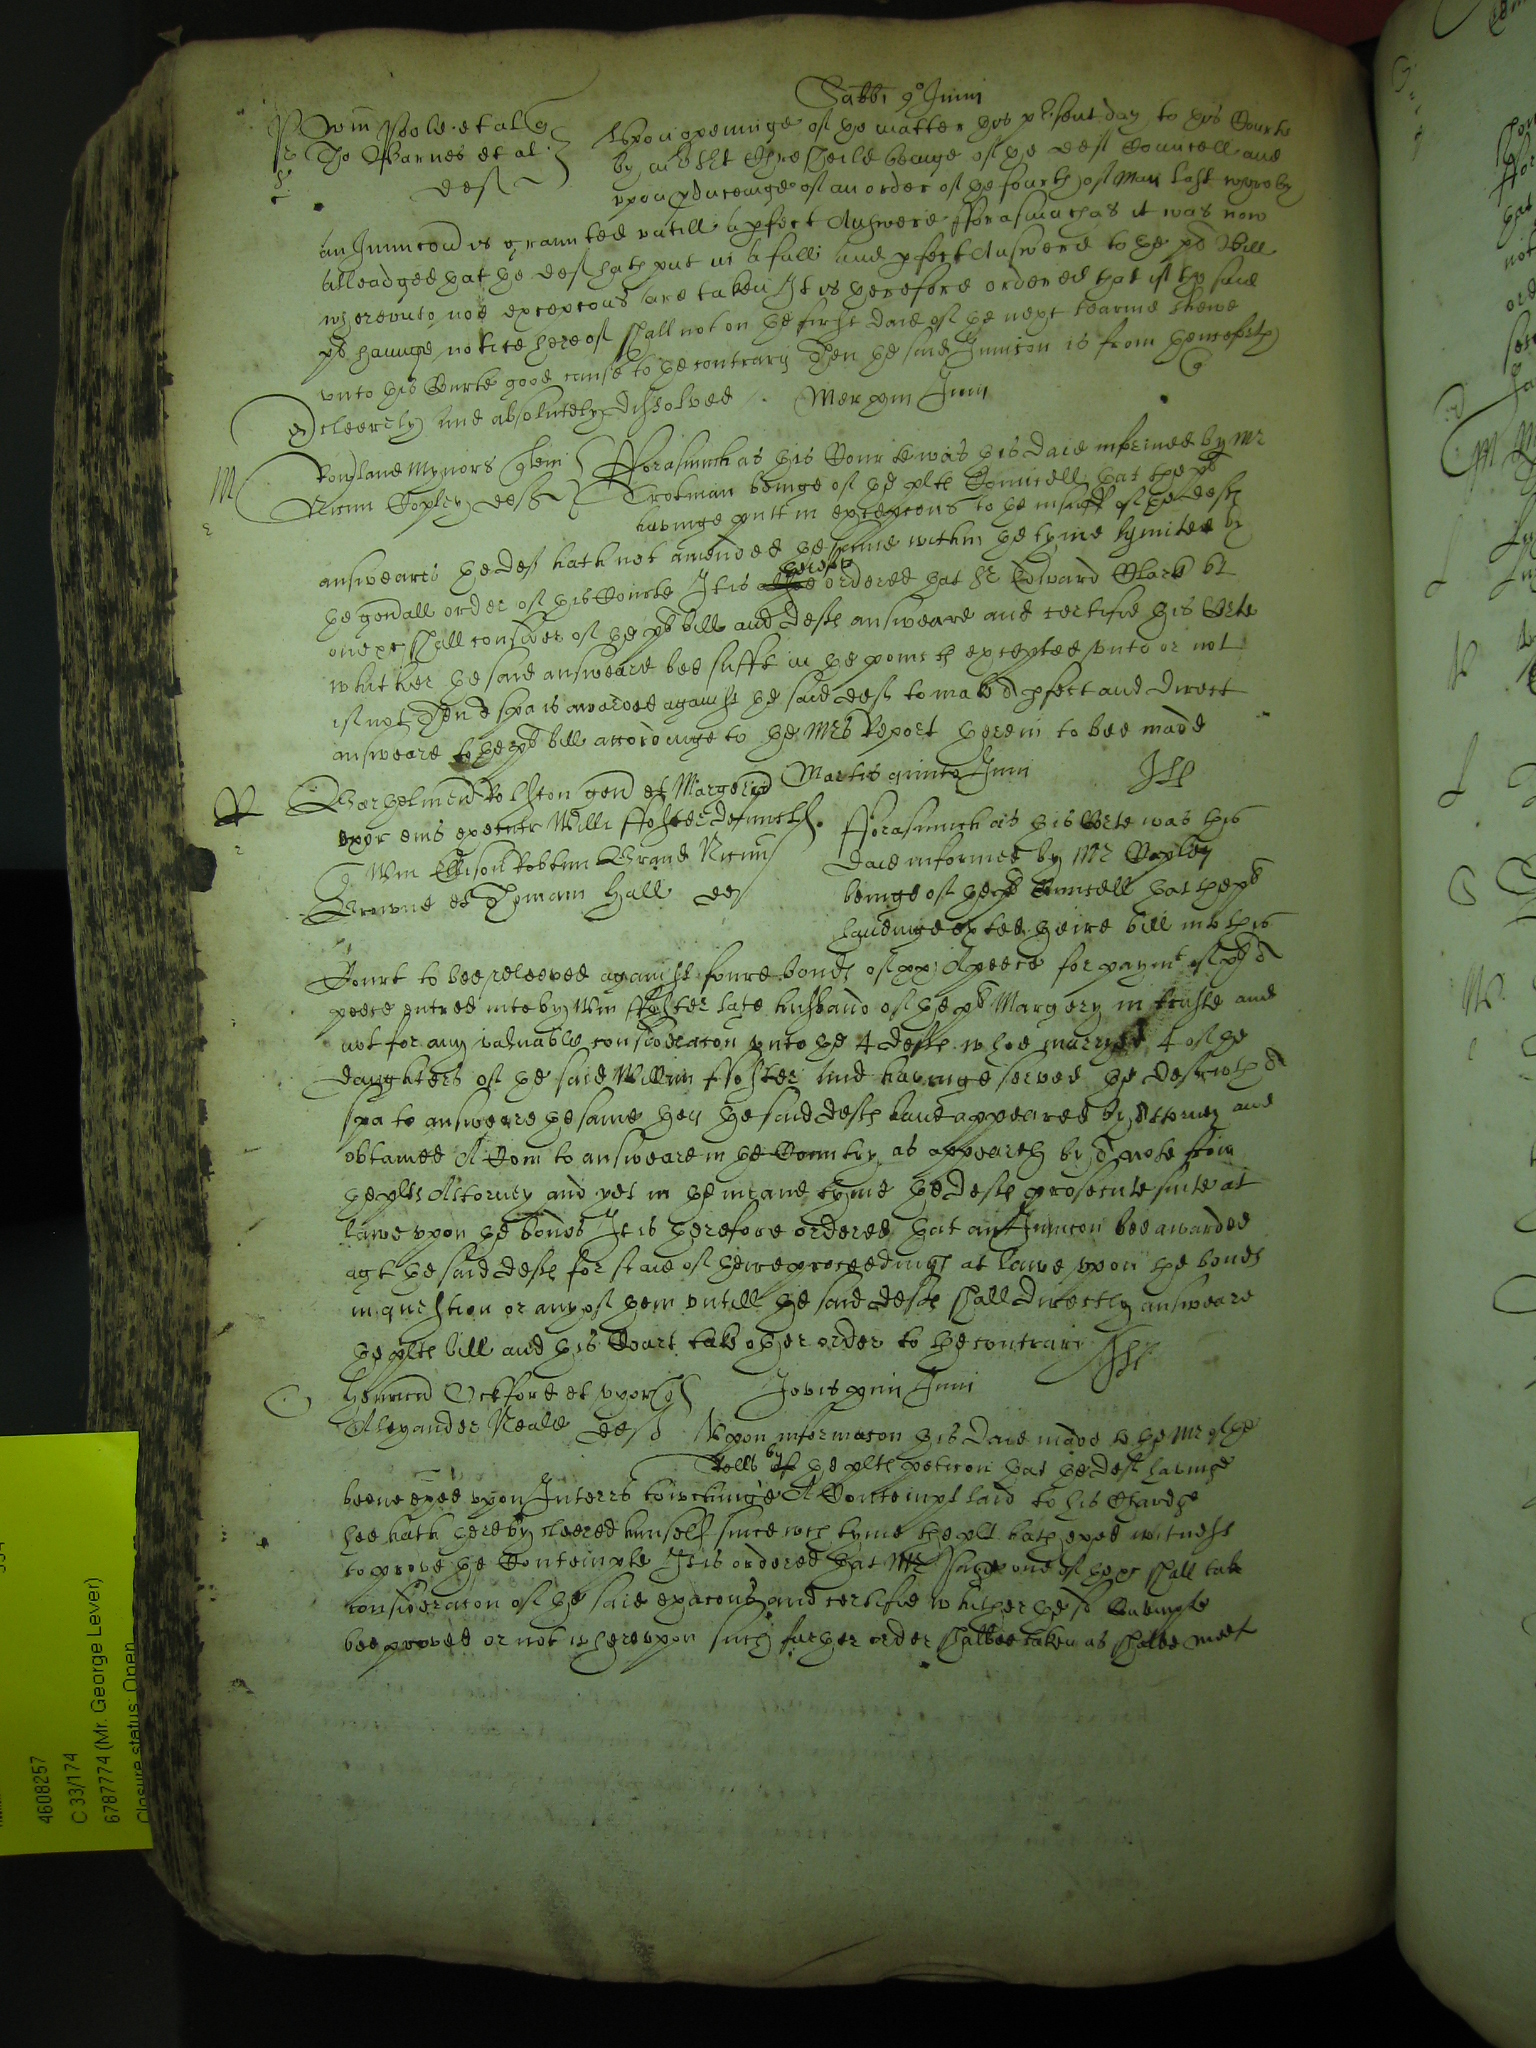 Sabbi 9o Junii
Wm Poole et al q
Tho Barnes et al
def
Upon openinge of the matter this present day to this Courte
by beinge of the def Councell and
upon producinge of an order of the fourth of May last wherby
an Junnccon is graunted untill a pfect Answere fforasmuch as it was now
alleadged that the def hath put in a full and pfect Answere to the pls Bill
whereunto noe excepcons are taken It is therefore ordered that if the said
pl havinge notice hereof shall not on the first daie of the next tearme shewe
unto this Courte good cause to the contrary Then the said Junccon is from thenceforth
cleerely and absolutely dissolved
Mer xiii Junii
M
Rowland Mynors quer
Ricun Copley def
Fforasmuch as this Courte was this daie informed by Mr
Trotman beinge of the plts Councell that the pl
havinge putt in excepcons to the insuff of the defts
answeares the def hath not amended the same within the tyme lymited by
the genall order of this Courte It is therefore ordered that Sr Edward Clark kt
one xc shall consider of the pls bill and defts answeare and certifie this Corte
whither the said answeare bee sufft in the points excepted unto or not
if not Then a spa is awarded against the said deft to make a pfect and direct
answeare to the pls bill accordinge to the Mrs Report herein to bee made
Martis quinto Junii
Rolston gen et Margeria
uxor eius executr Willi ffoster defuncti
Wm Ellison Robtum Grame Ricum
Browne et Thomam Hall def
Fforasmuch as this Corte was this
daie informed by Mr Copley
beinge of the pls Councell that the pls
havinge exhibited theire bill into this
Court to bee releeved against foure bonds of xxl Apeece for paymt of xl a
peece entred into by Wm ffoster late husband of the pl Margery in truste and
not for any valuable consideracon unto the 4 defts whoe marryed 4 of the
daughters of the said Willm ffoster And havinge served the defts with a
spa to answeare the same they the said defts have appeared by Attorney and
obtained A Com to answeare in the Country as appeareth by a note from
the plts Attorney and yet in the meane tyme the defts prosecute suite at
lawe upon the bonds It is therefore ordered that an Junccon bee awarded
agt the said defts for staie of theire proceedings at lawe upon the bonds
in question or any of them untill the said defts shall directly answeare
the plts bill and this Court take other order to the contrary
Henricus Ockford et uxor q
Alexander Neale def
Jovis xiiii Junii
Upon informacon this daie made to the Mr of the
Rolls by the plts peticon that the deft havinge
beene exed upon Interrs touchinge A Contempt laid to his Chardge
hee hath thereby cleered himself since wch tyme the plt hath exed witness
to prove the Contempte It is ordered that Mr Page one of the xc shall take
consideracon of the said exacons and certifie whither the sd Contempte
bee proved or not whereupon such further order shalbee taken as shalbe meet
4608257
C 33/174
6787774 (Mr. George Lever)
Closure status: Open